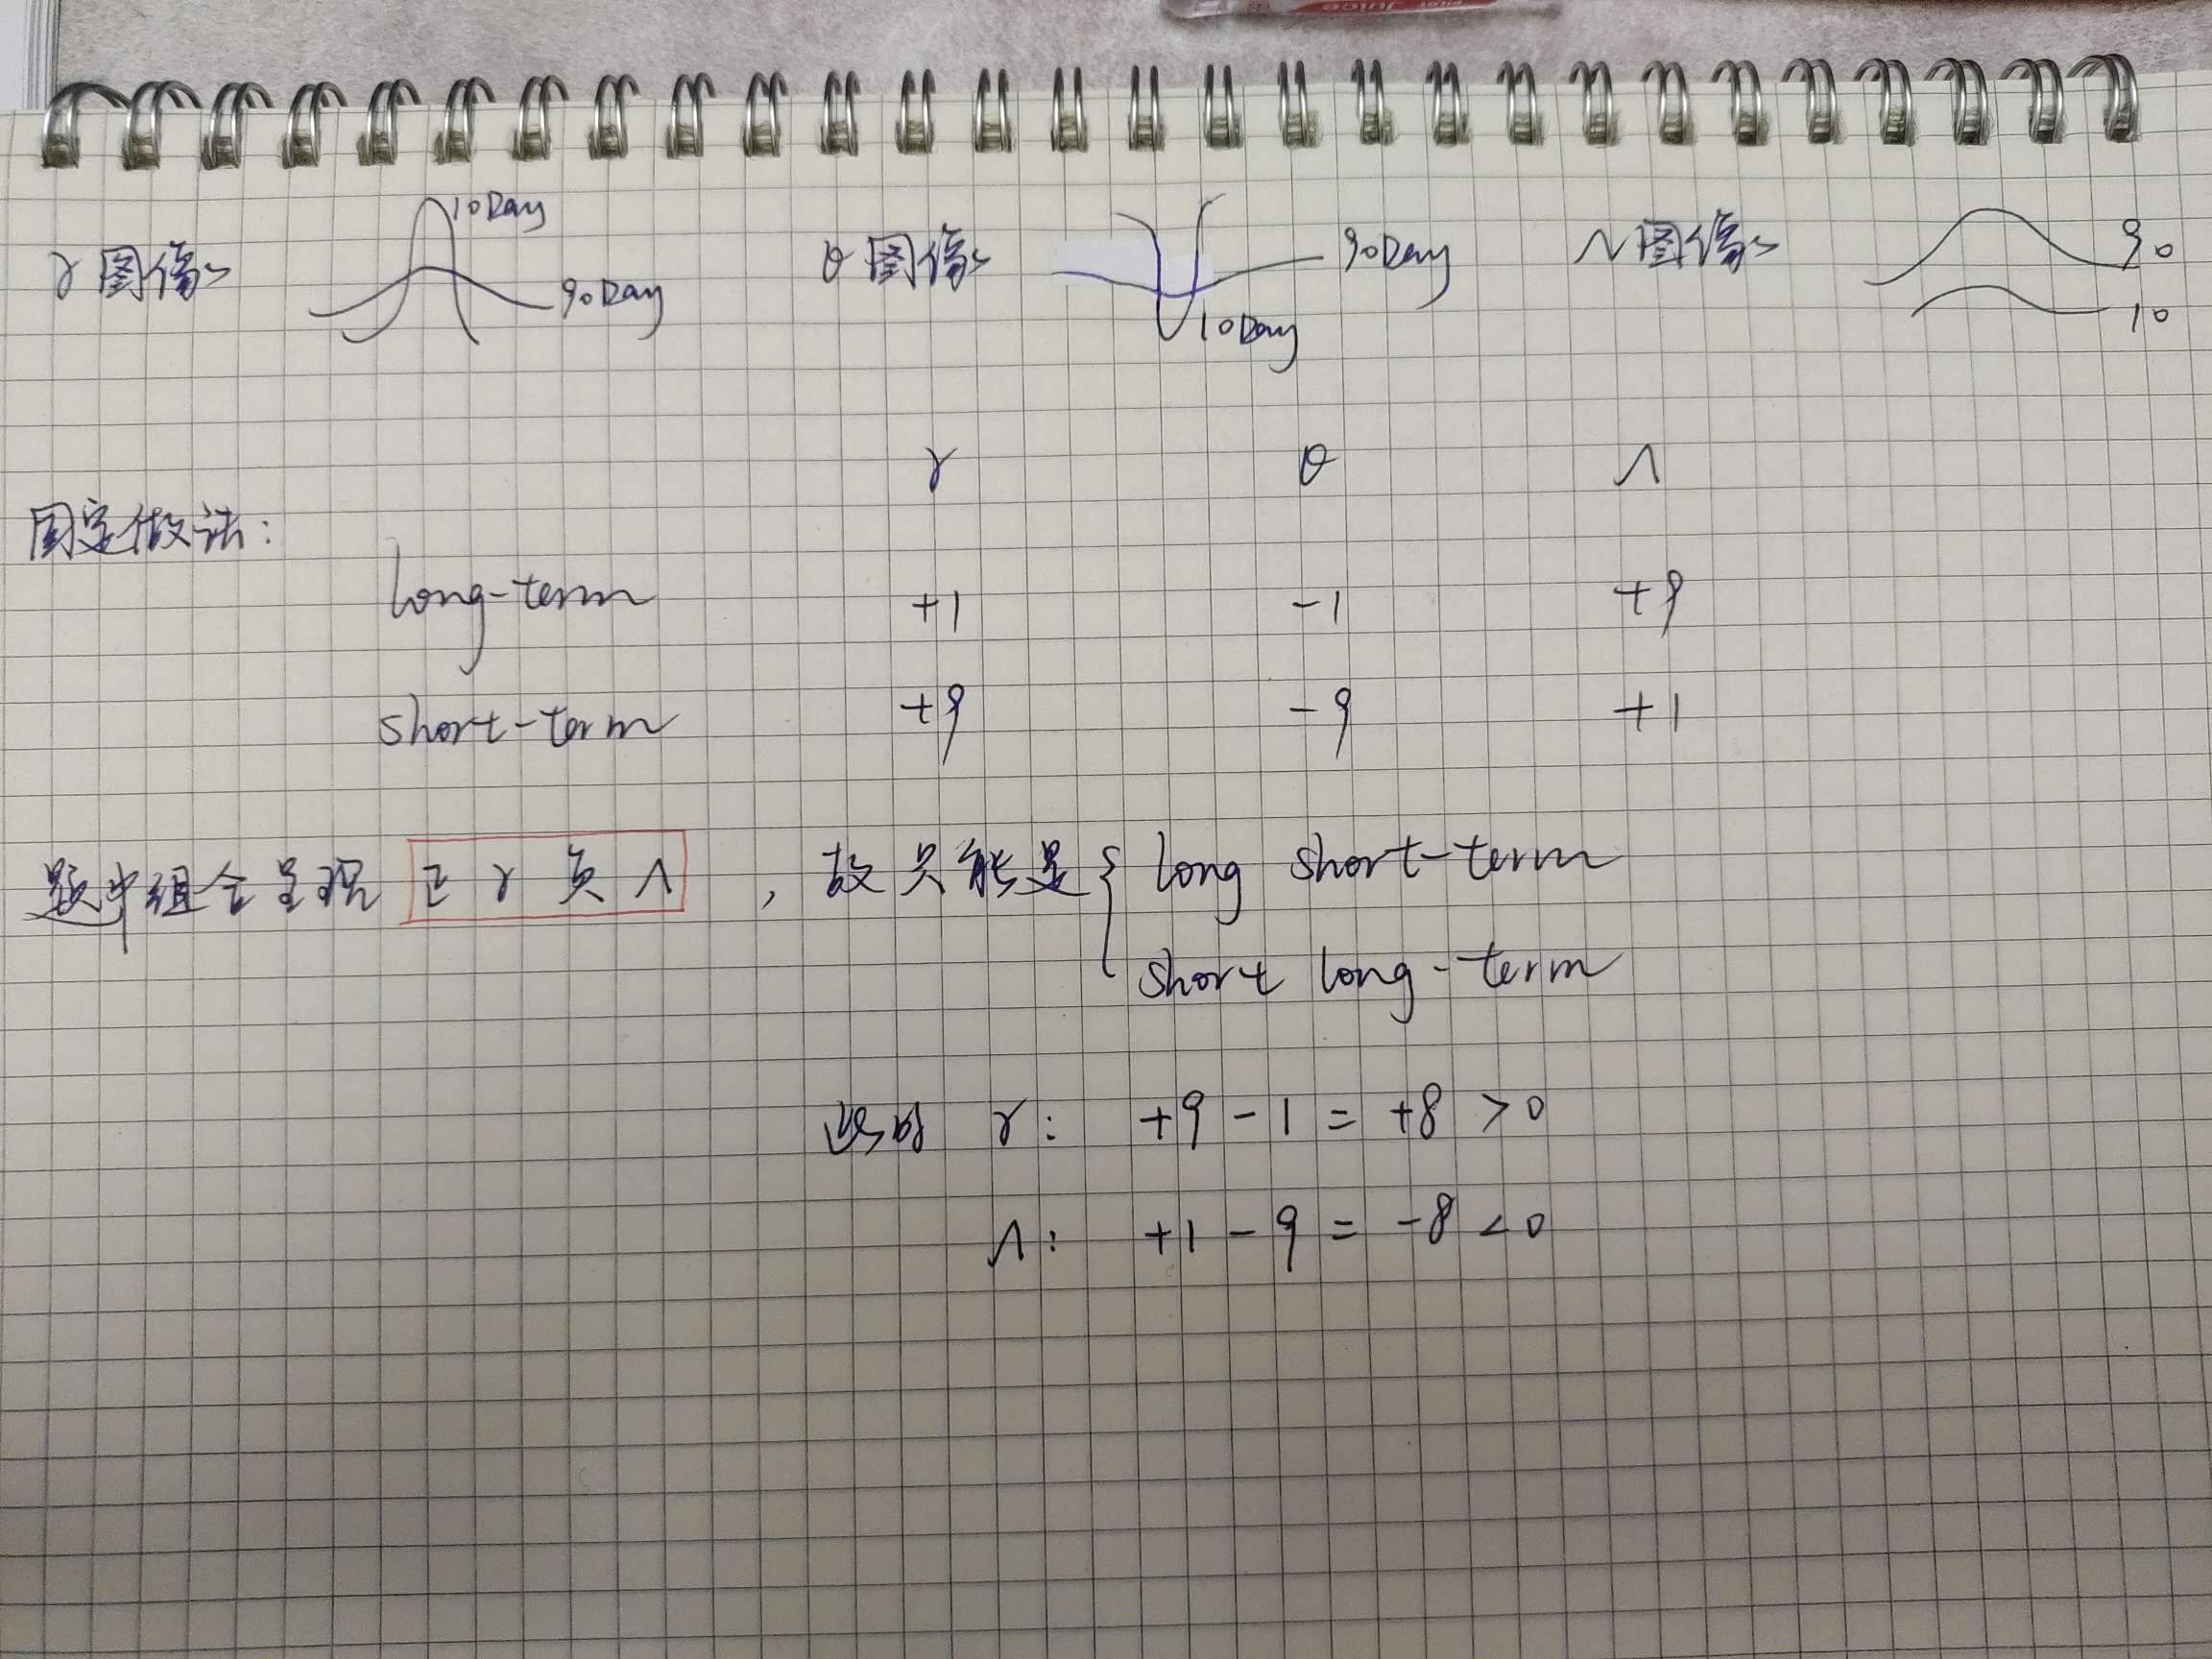 Juice
γ图像 10Day 90Day θ图像 90Day 10Day Λ图像 90 10
γ θ Λ
固定做法:
long-term +1 -1 +9
short-term +9 -9 +1
题中组合呈现 正γ负Λ , 故只能是{ long short-term
short long-term
此时 γ: +9-1=+8>0
Λ: +1-9=-8<0